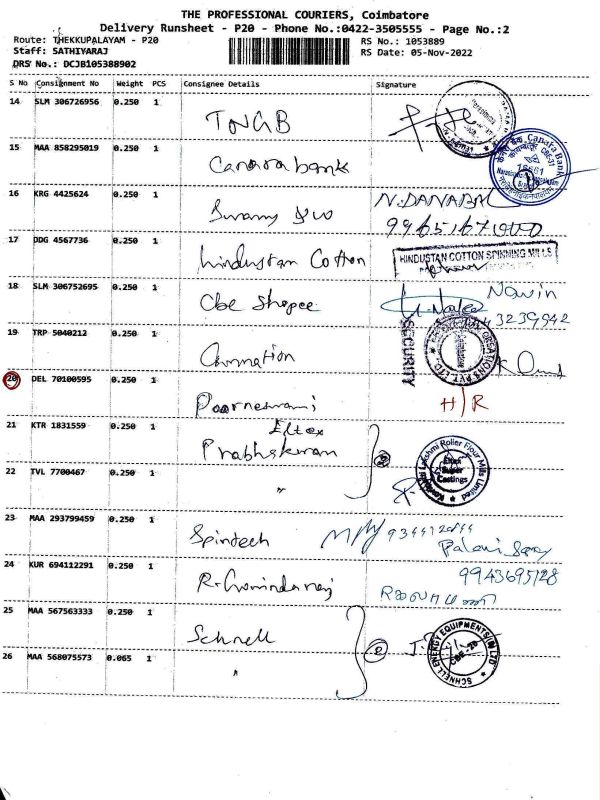 THE PROFESSIONAL COURIERS, Coimbatore
Delivery Runsheet - P20 - Phone No.:0422-3505555 - Page No.:2
Route: THEKKUPALAYAM - P20
RS No.: 1053889
Staff: SATHIYARAJ
RS Date: 05-Nov-2022
DRS No.: DCJB105388902
S No Consignment No Weight PCS Consignee Details Signature
14 SLM 306726956 0.250 1
TNGB
15 MAA 858295019 0.250 1
Canara bank
Canara Bank
16 KRG 4425624 0.250 1
N. DANABAL
Swamy
17 DDG 4567736 0.250 1
Hindustan Cotton
HINDUSTAN COTTON SPINNING MILLS
18 SLM 306752695 0.250 1
Cbe Shopee
Navin
19 TRP 5040212 0.250 1
SECURITY
20 DEL 70100595 0.250 1
Poorneswami
H/R
21 KTR 1831559 0.250 1
Eltex
Prabhakaran
Lakshmi Roller Flour Mills Limited
22 TVL 7700467 0.250 1
"
23 MAA 293799459 0.250 1
Spintech
24 KUR 694112291 0.250 1
9943695128
R. Govindaraj
25 MAA 567563333 0.250 1
Schnell
SCHNELL ENERGY EQUIPMENTS (P) LTD
CBE-20
26 MAA 568075573 0.065 1
"